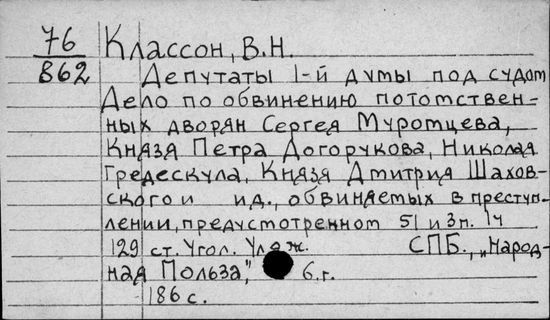 76
862
Классон, В.Н.
Депутаты 1-й думы под судом
Дело по обвинению потомствен-
ных дворян Сергея Муромцева,
Князя Петра Догорукова, Николая
Гредескула, Князя Дмитрия Шахов-
ского и ид., обвиняемых в преступ-
лении, предусмотренном 51 и 3 п. 1ч
129 ст. Угол. Улож. СПБ., „Народ-
ная Польза", 6.г.
186 с.